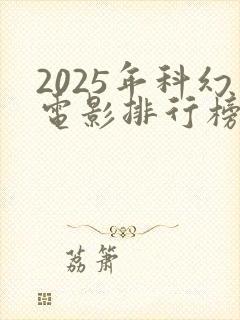 2025年科幻
电影排行榜
荔箫